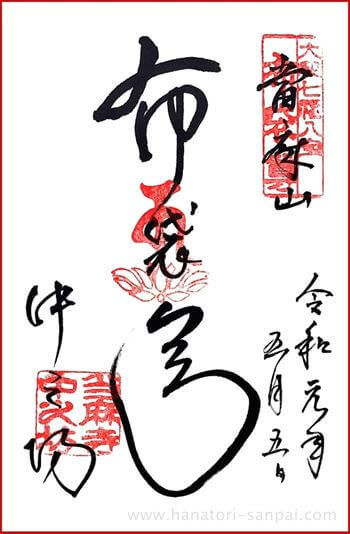 大和七福八宝
當麻山
令和元年
五月五日
布袋尊
中之坊
當麻寺
中之坊
www.hanatori-sanpai.com